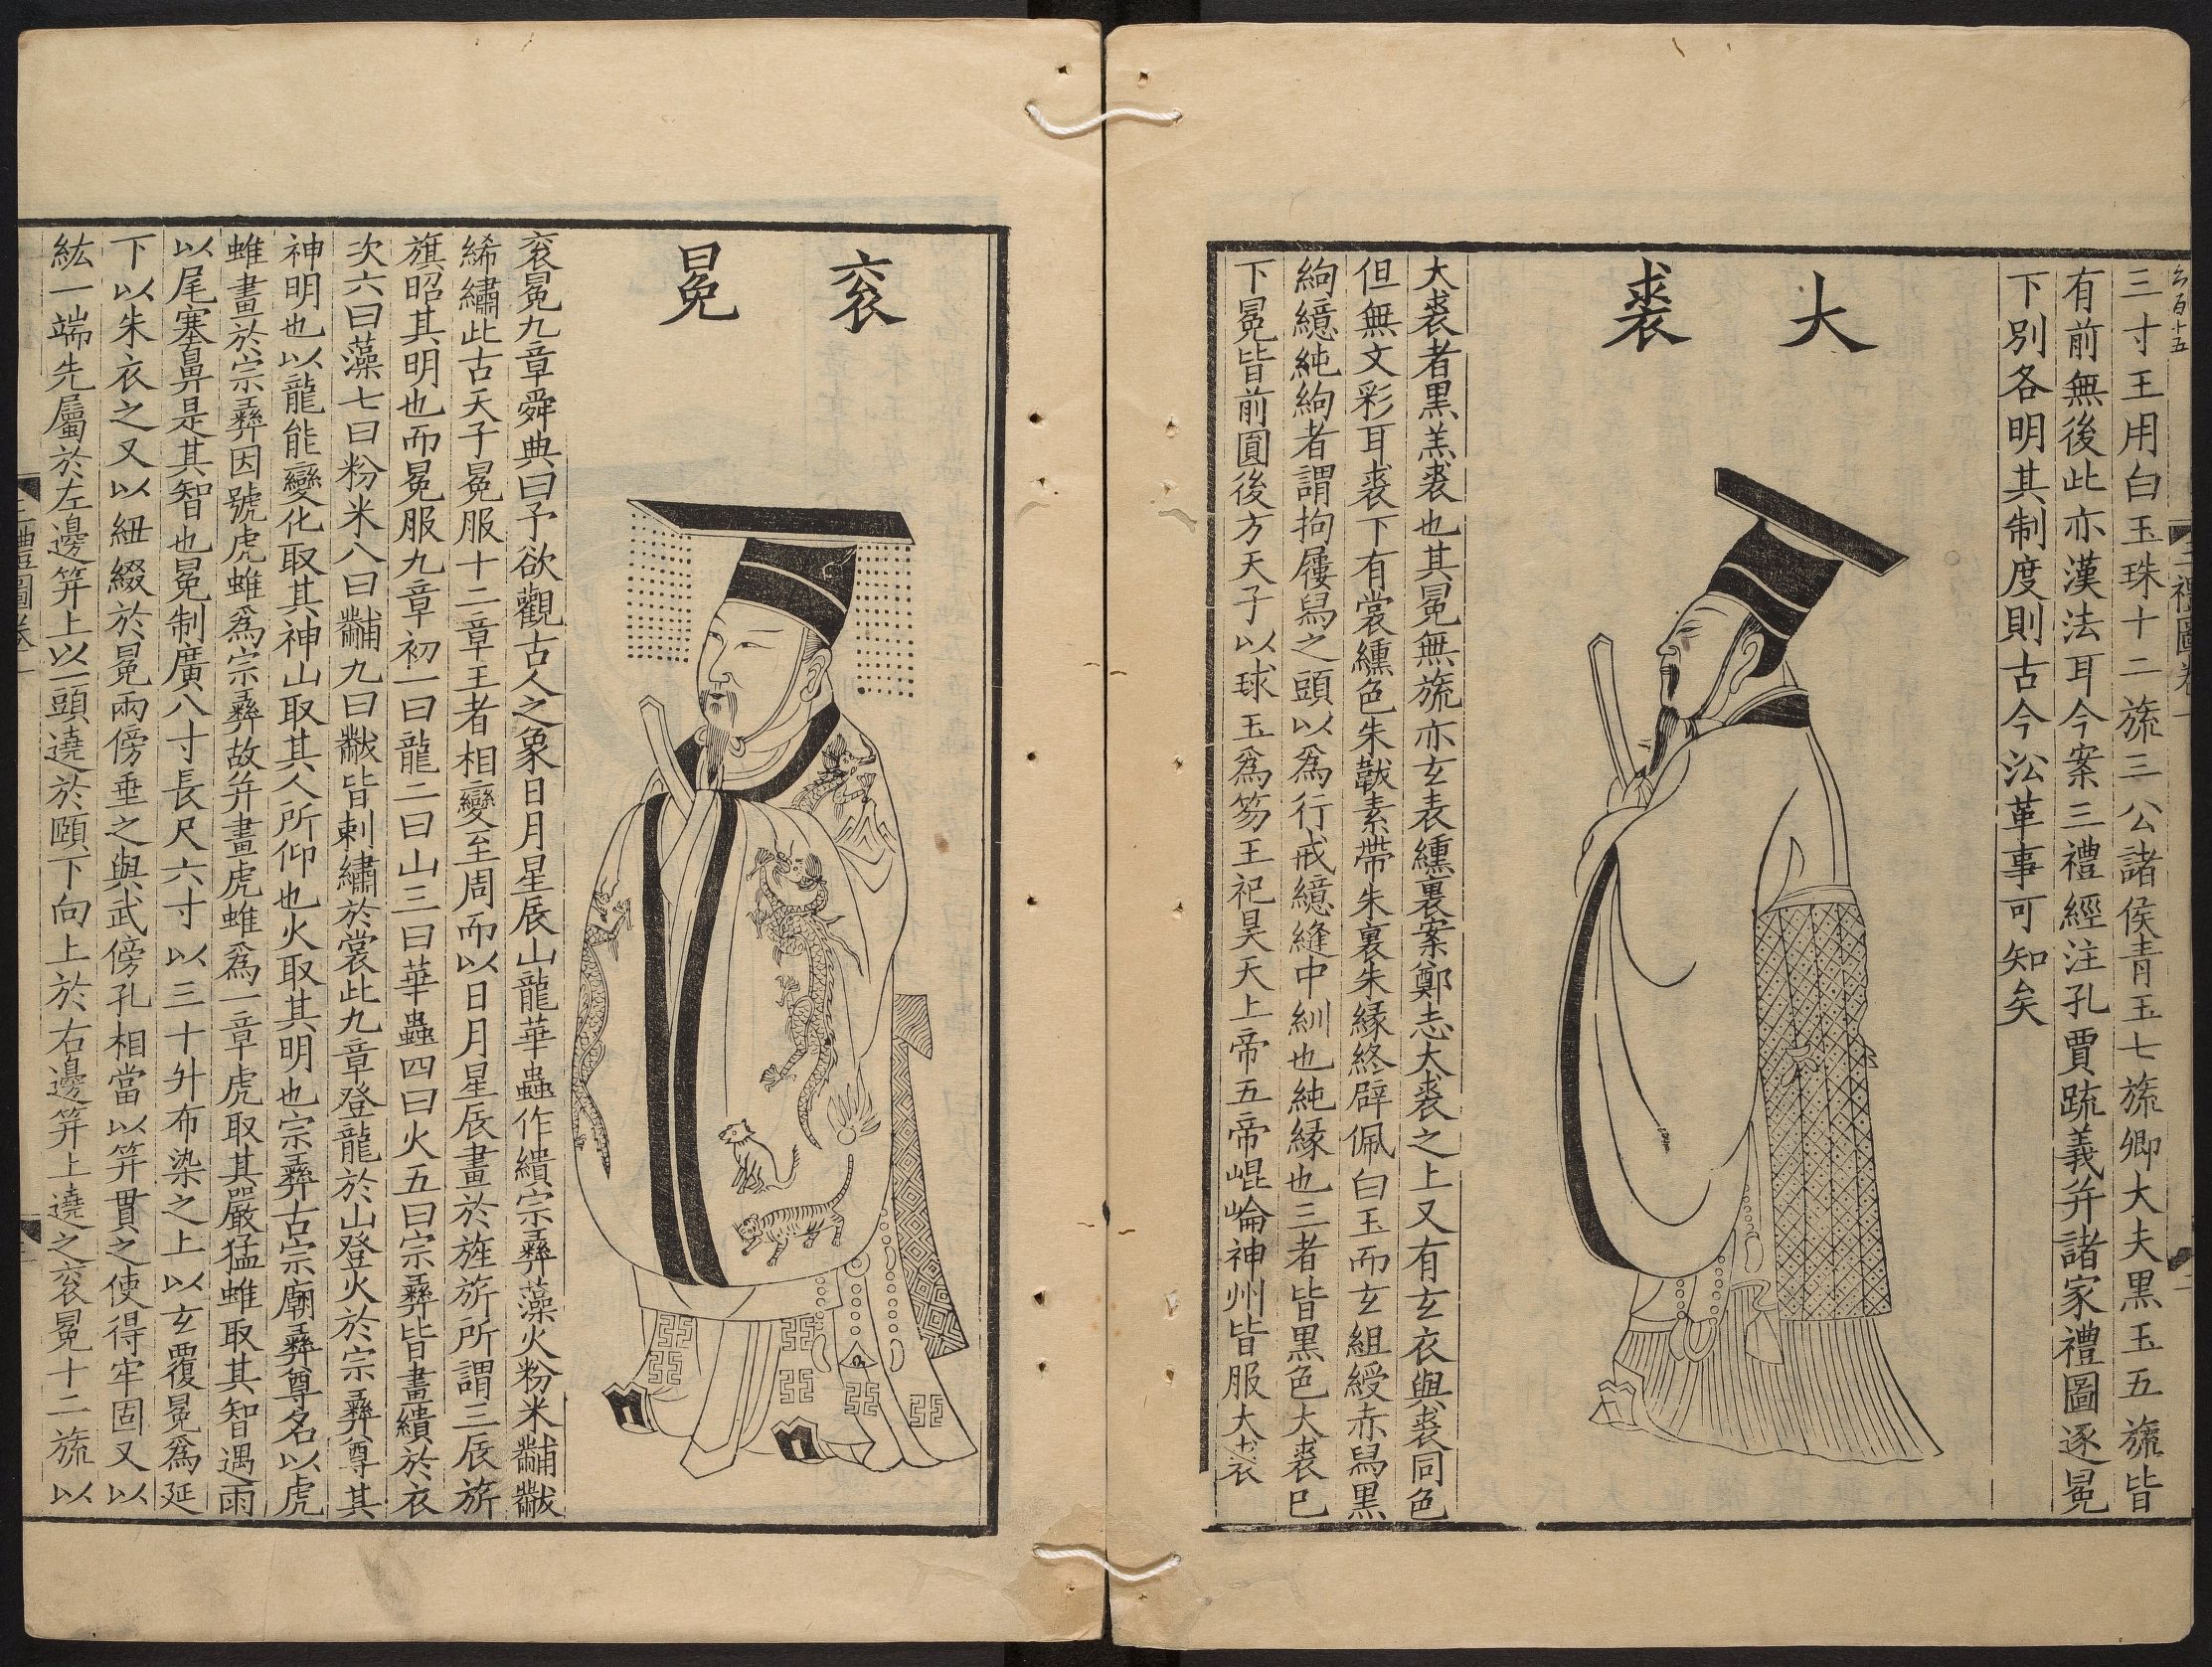 三寸王用白玉珠十二旒三公諸侯青玉七旒卿大夫黑玉五旒皆
有前無後此亦漢法耳今案三禮經注孔賈疏義并諸家禮圖逐冕
下別各明其制度則古今沿革事可知矣
大裘
大裘者黑羔裘也其冕無旒亦玄表纁裏案鄭志大裘之上又有玄衣與裘同色
但無文彩耳裘下有裳纁色朱韍素帶朱裏朱緣終辟佩白玉而玄組綬赤舄黑
絇繶純絇者謂拘屨舄之頭以為行戒繶縫中紃也純緣也三者皆黑色大裘已
下冕皆前圓後方天子以球玉為笏王祀昊天上帝五帝崐崘神州皆服大裘
三禮圖卷一
二
衮冕
衮冕九章舜典曰予欲觀古人之象日月星辰山龍華蟲作繢宗彝藻火粉米黼黻
絺繡此古天子冕服十二章王者相變至周而以日月星辰畫於旌旂所謂三辰旂
旗昭其明也而冕服九章初一曰龍二曰山三曰華蟲四曰火五曰宗彝皆畫繢於衣
次六曰藻七曰粉米八曰黼九曰黻皆刺繡於裳此九章登龍於山登火於宗彝尊其
神明也以龍能變化取其神山取其人所仰也火取其明也宗彝古宗廟彝尊名以虎
蜼畫於宗彝因號虎蜼為宗彝故并畫虎蜼為一章虎取其嚴猛蜼取其智遇雨
以尾塞鼻是其智也冕制廣八寸長尺六寸以三十升布染之上以玄覆冕為延
下以朱衣之又以紐綴於冕兩傍垂之與武傍孔相當以笄貫之使得牢固又以
紘一端先屬於左邊笄上以一頭遶於頤下向上於右邊笄上遶之衮冕十二旒以